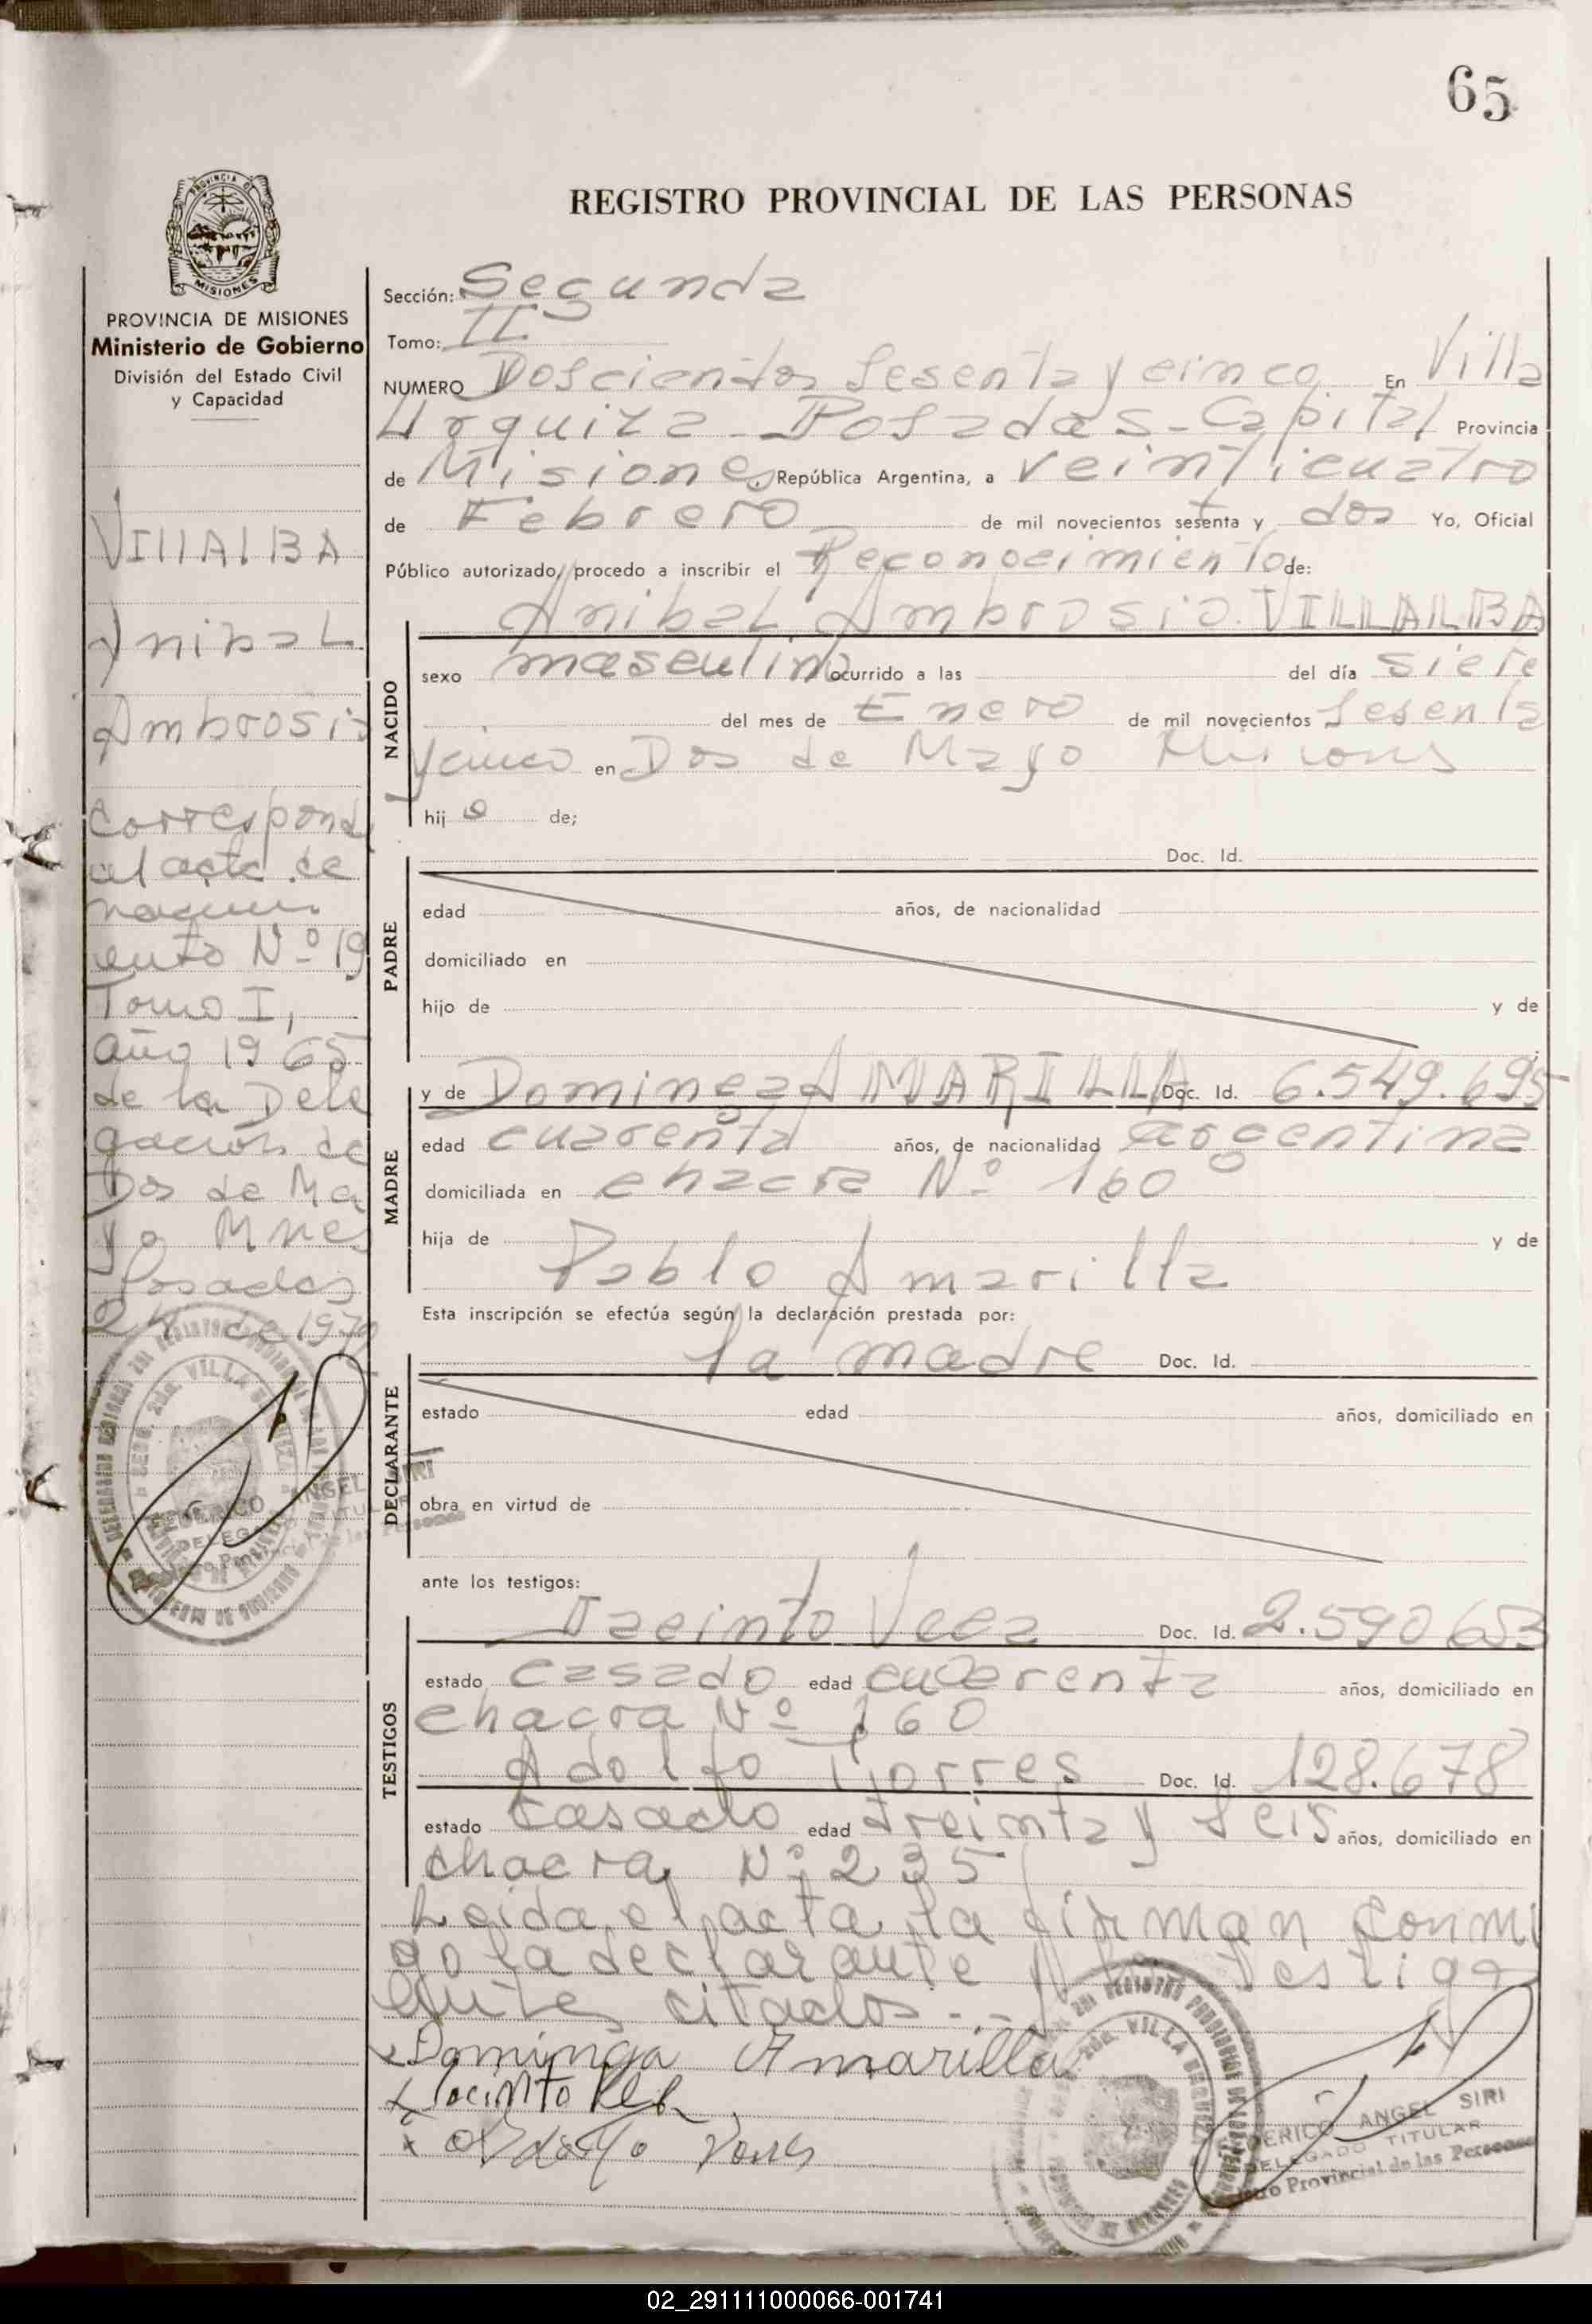 65
REGISTRO PROVINCIAL DE LAS PERSONAS
PROVINCIA DE MISIONES
Ministerio de Gobierno
División del Estado Civil
y Capacidad
VILLALBA
Anibal
Ambrosio
Correspond
al acta de
nacimi
ento Nº 19
Tomo I,
año 1965
de la Dele
gación de
Dos de Ma
yo Mnes
Posadas
Sección: Segunda
Tomo: II
NUMERO Doscientos Sesenta y cinco En Villa
Urquiza - Posadas - Capital Provincia
de Misiones República Argentina, a veinticuatro
de Febrero de mil novecientos sesenta y dos Yo, Oficial
Público autorizado, procedo a inscribir el Reconocimiento de:
NACIDO
Anibal Ambrosio VILLALBA
sexo masculino ocurrido a las del día siete
del mes de Enero de mil novecientos Sesenta
y cinco en Dos de Mayo Misiones
hijo de;
PADRE
Doc. Id.
edad años, de nacionalidad
domiciliado en
hijo de y de
MADRE
y de Dominga AMARILLA Doc. Id. 6.549.695
edad cuarenta años, de nacionalidad argentina
domiciliada en chacra Nº 160
hija de y de
Pablo Amarilla
Esta inscripción se efectúa según la declaración prestada por:
DECLARANTE
la madre Doc. Id.
estado edad años, domiciliado en
obra en virtud de
ante los testigos:
TESTIGOS
Jacinto Doc. Id. 2.590653
estado casado edad cuarenta años, domiciliado en
chacra Nº 160
Adolfo Torres Doc. Id. 128.678
estado Casado edad treinta y Seis años, domiciliado en
chacra Nº 235
Leida el acta la firman conmi
go la declarante y los testigos
antes citados.-
Dominga Amarilla
Jacinto
Adolfo Torres
FEDERICO ANGEL SIRI
DELEGADO TITULAR
Registro Provincial de las Personas
02_291111000066-001741